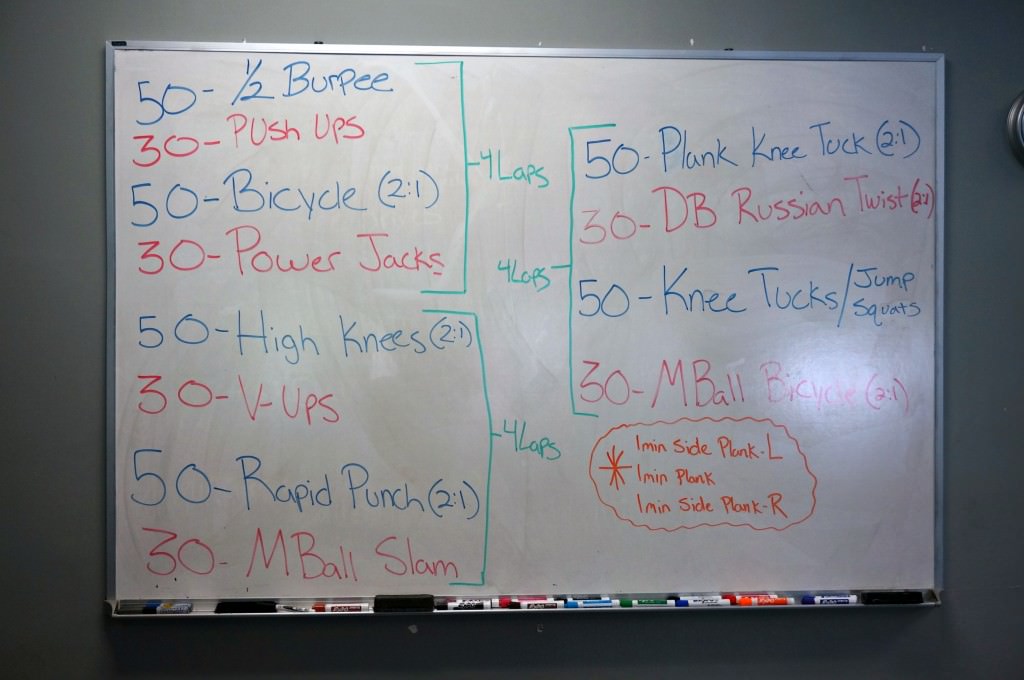 50- 1/2 Burpee
30- Push Ups
50- Bicycle (2:1)
30- Power Jacks
4 Laps
50- High Knees (2:1)
30- V-Ups
50- Rapid Punch (2:1)
30- MBall Slam
4 Laps
50- Plank Knee Tuck (2:1)
30- DB Russian Twist (2:1)
50- Knee Tucks/Jump Squats
30- MBall Bicycle (2:1)
4 Laps
1min Side Plank-L
1min Plank
1min Side Plank-R